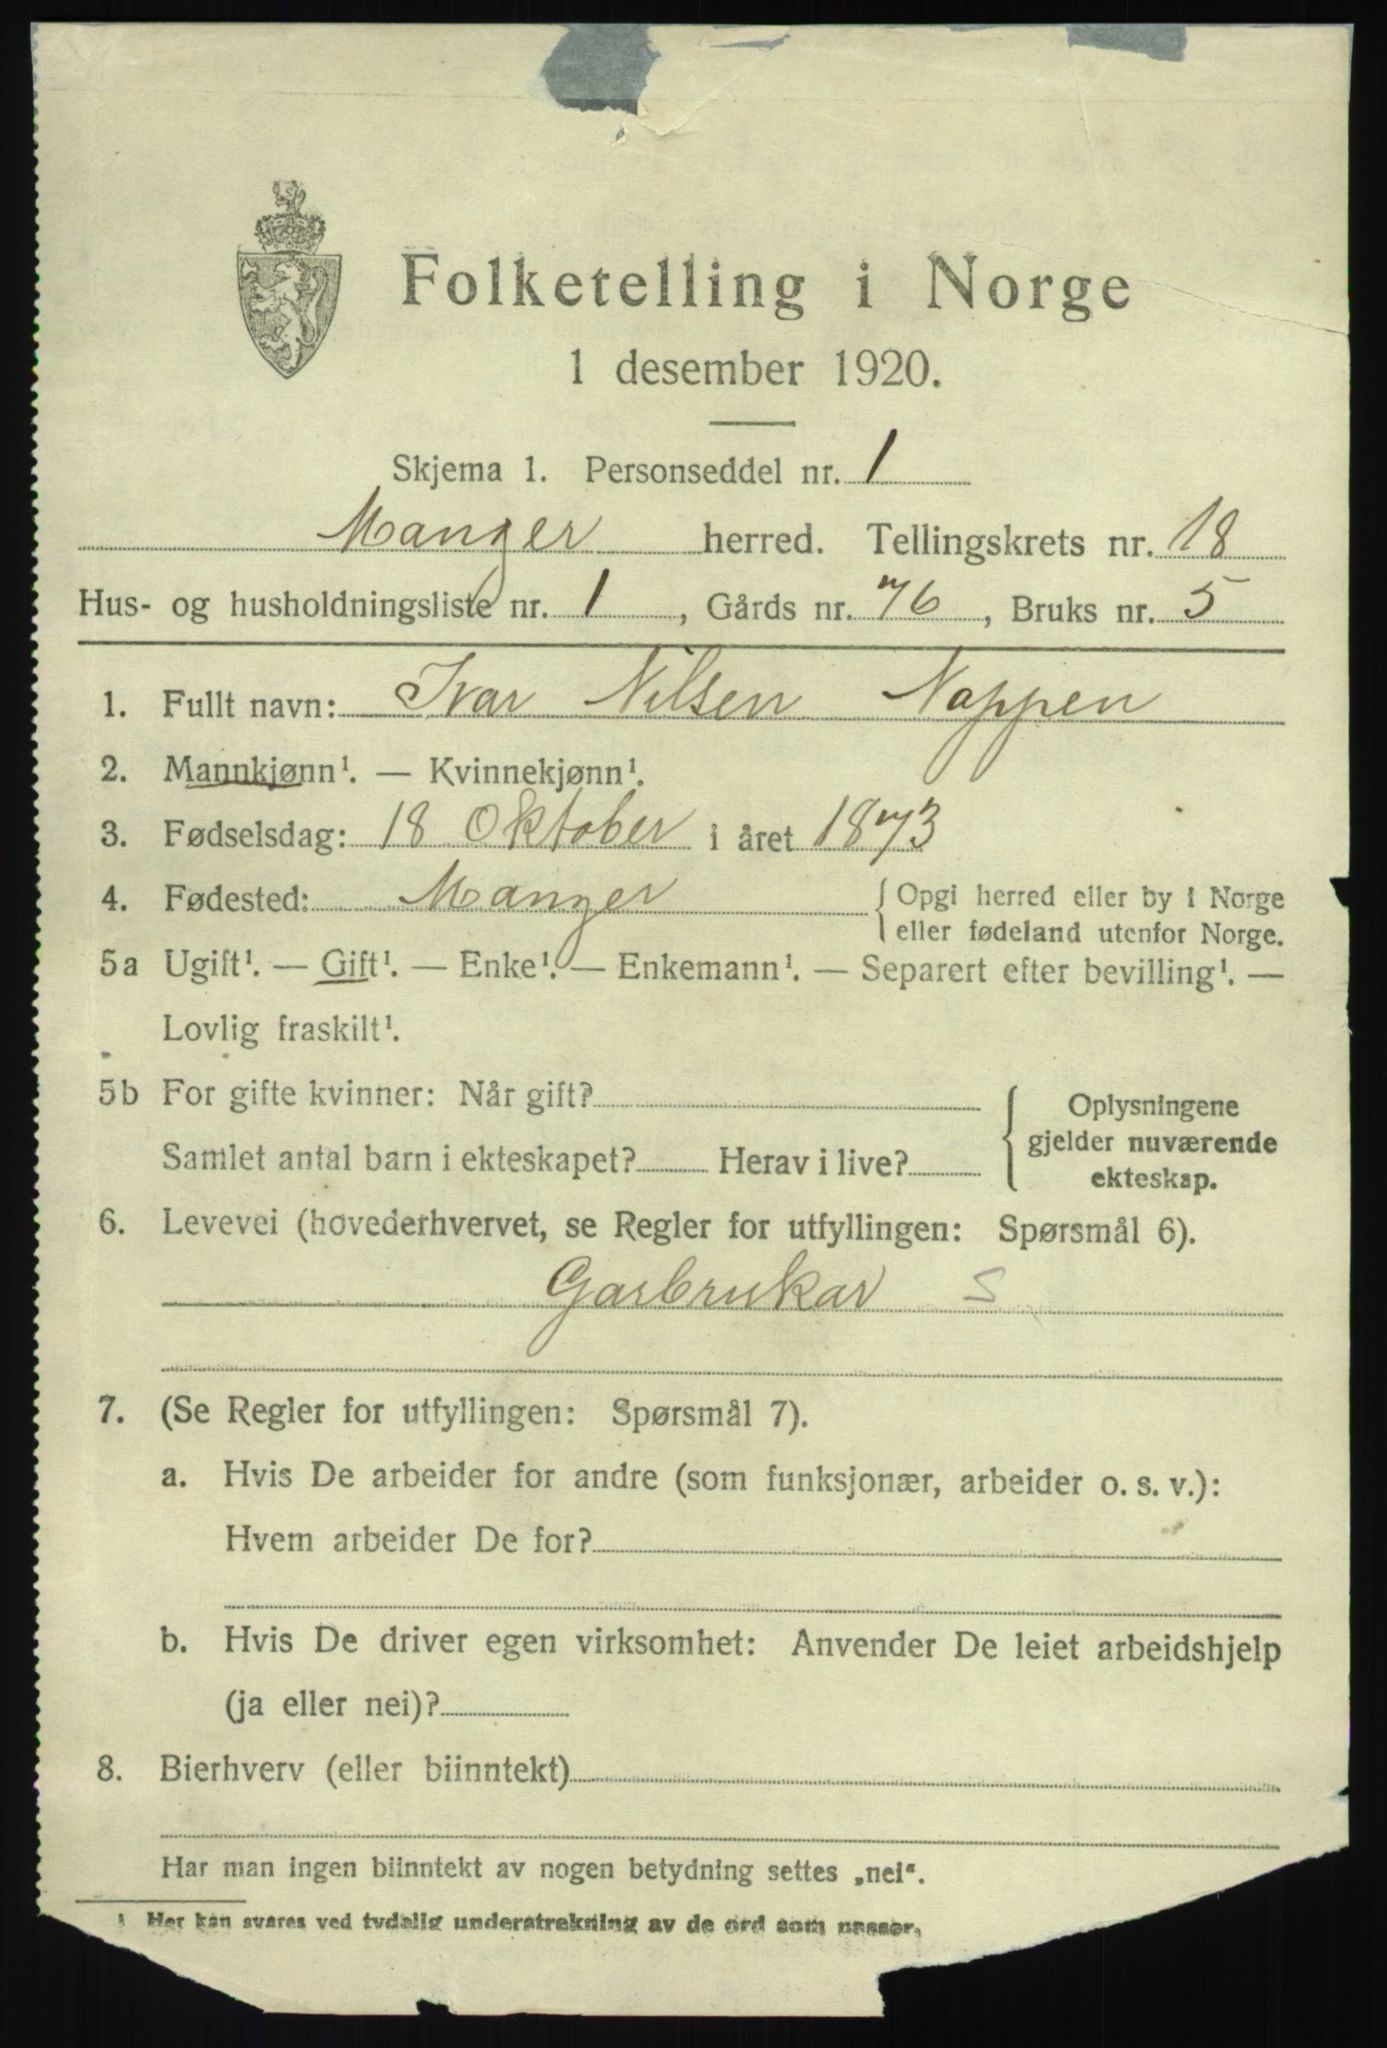 Folketelling i Norge
1 desember 1920.
Skjema 1. Personseddel nr. 1
Manger herred. Tellingskrets nr. 18
Hus- og husholdningsliste nr. 1, Gårds nr. 76, Bruks nr. 5
1. Fullt navn: Ivar Nilsen Noppen
2. Mannkjønn¹. — Kvinnekjønn¹.
3. Fødselsdag: 18 Oktober i året 1873
4. Fødested: Manger { Opgi herred eller by i Norge
eller fødeland utenfor Norge.
5a Ugift¹. — Gift¹. — Enke¹. — Enkemann¹. — Separert efter bevilling¹. —
Lovlig fraskilt¹.
5b For gifte kvinner: Når gift?
Samlet antal barn i ekteskapet? Herav i live?
{ Oplysningene
gjelder nuværende
ekteskap.
6. Levevei (hovederhvervet, se Regler for utfyllingen: Spørsmål 6).
Garbrukar S
7. (Se Regler for utfyllingen: Spørsmål 7).
a. Hvis De arbeider for andre (som funksjonær, arbeider o. s. v.):
Hvem arbeider De for?
b. Hvis De driver egen virksomhet: Anvender De leiet arbeidshjelp
(ja eller nei)?
8. Bierhverv (eller biinntekt)
Har man ingen biinntekt av nogen betydning settes „nei“.
¹ Her kan svares ved tydelig understrekning av de ord som passer.